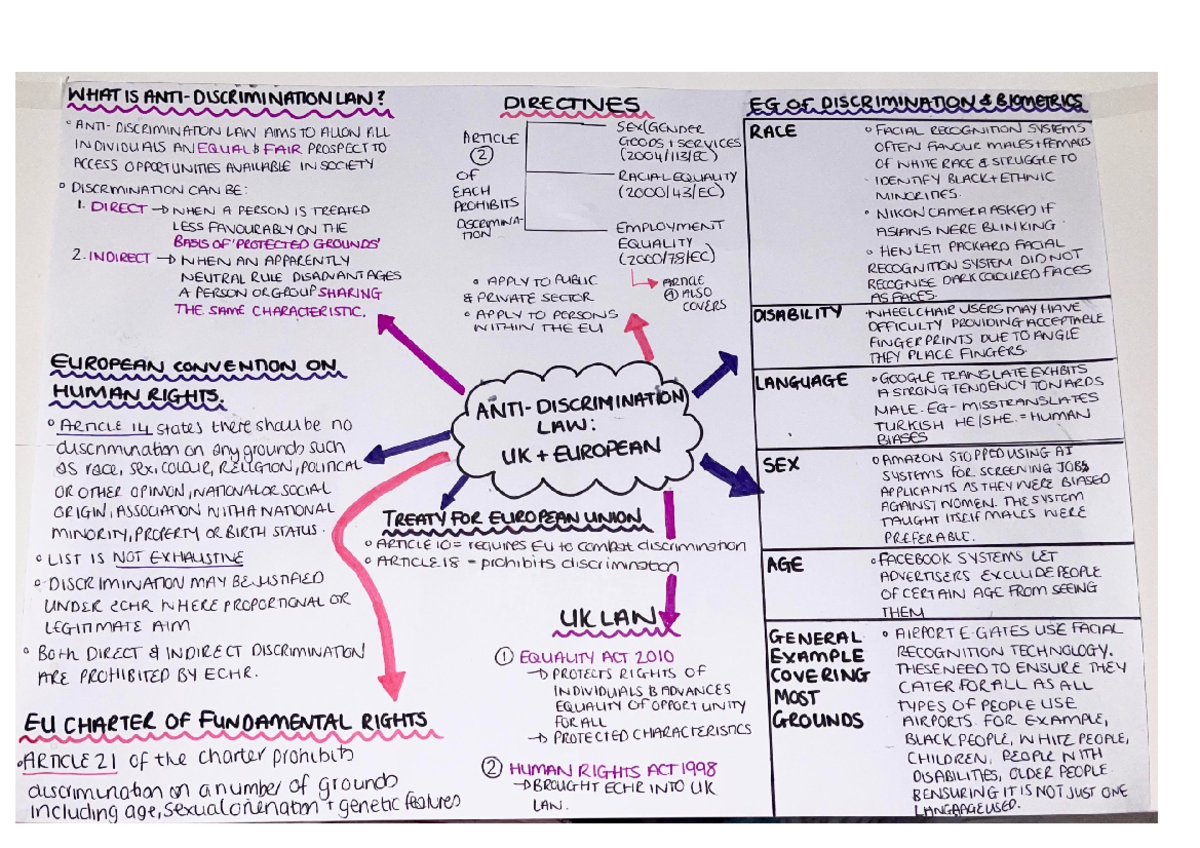 WHAT IS ANTI-DISCRIMINATION LAW?
° ANTI-DISCRIMINATION LAW AIMS TO ALLOW ALL
INDIVIDUALS AN EQUAL & FAIR PROSPECT TO
ACCESS OPPORTUNITIES AVAILABLE IN SOCIETY
° DISCRMINATION CAN BE:
1. DIRECT → WHEN A PERSON IS TREATED
LESS FAVOURABLY ON THE
BASIS OF 'PROTECTED GROUNDS'
2. INDIRECT → WHEN AN APPARENTLY
NEUTRAL RULE DISADVANTAGES
A PERSON OR GROUP SHARING
THE SAME CHARACTERISTIC.
EUROPEAN CONVENTION ON
HUMAN RIGHTS.
° ARTICLE 14 states there shall be no
discrimination on any grounds such
as race, sex, COLOUR, RELIGION, POLITICAL
OR OTHER OPINION, NATIONAL OR SOCIAL
ORIGIN, ASSOCIATION WITH A NATIONAL
MINORITY, PROPERTY OR BIRTH STATUS.
° LIST IS NOT EXHAUSTIVE
° DISCRIMINATION MAY BE JUSTIFIED
UNDER ECHR WHERE PROPORTIONAL OR
LEGITIMATE AIM
° BOTH DIRECT & INDIRECT DISCRIMINATION
ARE PROHIBITED BY ECHR.
EU CHARTER OF FUNDAMENTAL RIGHTS
° ARTICLE 21 of the charter prohibits
discrimination on a number of grounds
including age, sexual orientation + genetic features
DIRECTIVES
ARTICLE
②
OF
EACH
PROHIBITS
DISCRIMINA-
TION
SEX (GENDER
GOODS + SERVICES
(2004/113/EC)
RACIAL EQUALITY
(2000/43/EC)
EMPLOYMENT
EQUALITY
(2000/78/EC)
ARTICLE
④ ALSO
COVERS
° APPLY TO PUBLIC
& PRIVATE SECTOR
° APPLY TO PERSONS
WITHIN THE EU
ANTI-DISCRIMINATION
LAW:
UK + EUROPEAN
TREATY FOR EUROPEAN UNION
° ARTICLE 10 = requires EU to combat discrimination
° ARTICLE 18 = prohibits discrimination
UK LAW
① EQUALITY ACT 2010
→ PROTECTS RIGHTS OF
INDIVIDUALS & ADVANCES
EQUALITY OF OPPORTUNITY
FOR ALL
→ PROTECTED CHARACTERISTICS
② HUMAN RIGHTS ACT 1998
→ BROUGHT ECHR INTO UK
LAW.
EG OF DISCRIMINATION & BIOMETRICS
RACE
° FACIAL RECOGNITION SYSTEMS
OFTEN FAVOUR MALES + FEMALES
OF WHITE RACE & STRUGGLE TO
IDENTIFY BLACK + ETHNIC
MINORITIES.
° NIKON CAMERA ASKED IF
ASIANS WERE BLINKING
° HEWLETT PACKARD FACIAL
RECOGNITION SYSTEM DID NOT
RECOGNISE DARK COLOURED FACES
AS FACES.
DISABILITY
° WHEELCHAIR USERS MAY HAVE
DIFFICULTY PROVIDING ACCEPTABLE
FINGERPRINTS DUE TO ANGLE
THEY PLACE FINGERS.
LANGUAGE
° GOOGLE TRANSLATE EXHBITS
A STRONG TENDENCY TOWARDS
MALE. EG - MISSTRANSLATES
TURKISH HE/SHE. = HUMAN
BIASES
SEX
° AMAZON STOPPED USING AI
SYSTEMS FOR SCREENING JOBS
APPLICANTS AS THEY WERE BIASED
AGAINST WOMEN. THE SYSTEM
TAUGHT ITSELF MALES WERE
PREFERABLE.
AGE
° FACEBOOK SYSTEMS LET
ADVERTISERS EXCLUDE PEOPLE
OF CERTAIN AGE FROM SEEING
THEM
GENERAL
EXAMPLE
COVERING
MOST
GROUNDS
° AIRPORT E-GATES USE FACIAL
RECOGNITION TECHNOLOGY.
THESE NEED TO ENSURE THEY
CATER FOR ALL AS ALL
TYPES OF PEOPLE USE
AIRPORTS. FOR EXAMPLE,
BLACK PEOPLE, WHITE PEOPLE,
CHILDREN, PEOPLE WITH
DISABILITIES, OLDER PEOPLE
& ENSURING IT IS NOT JUST ONE
LANGUAGE USED.